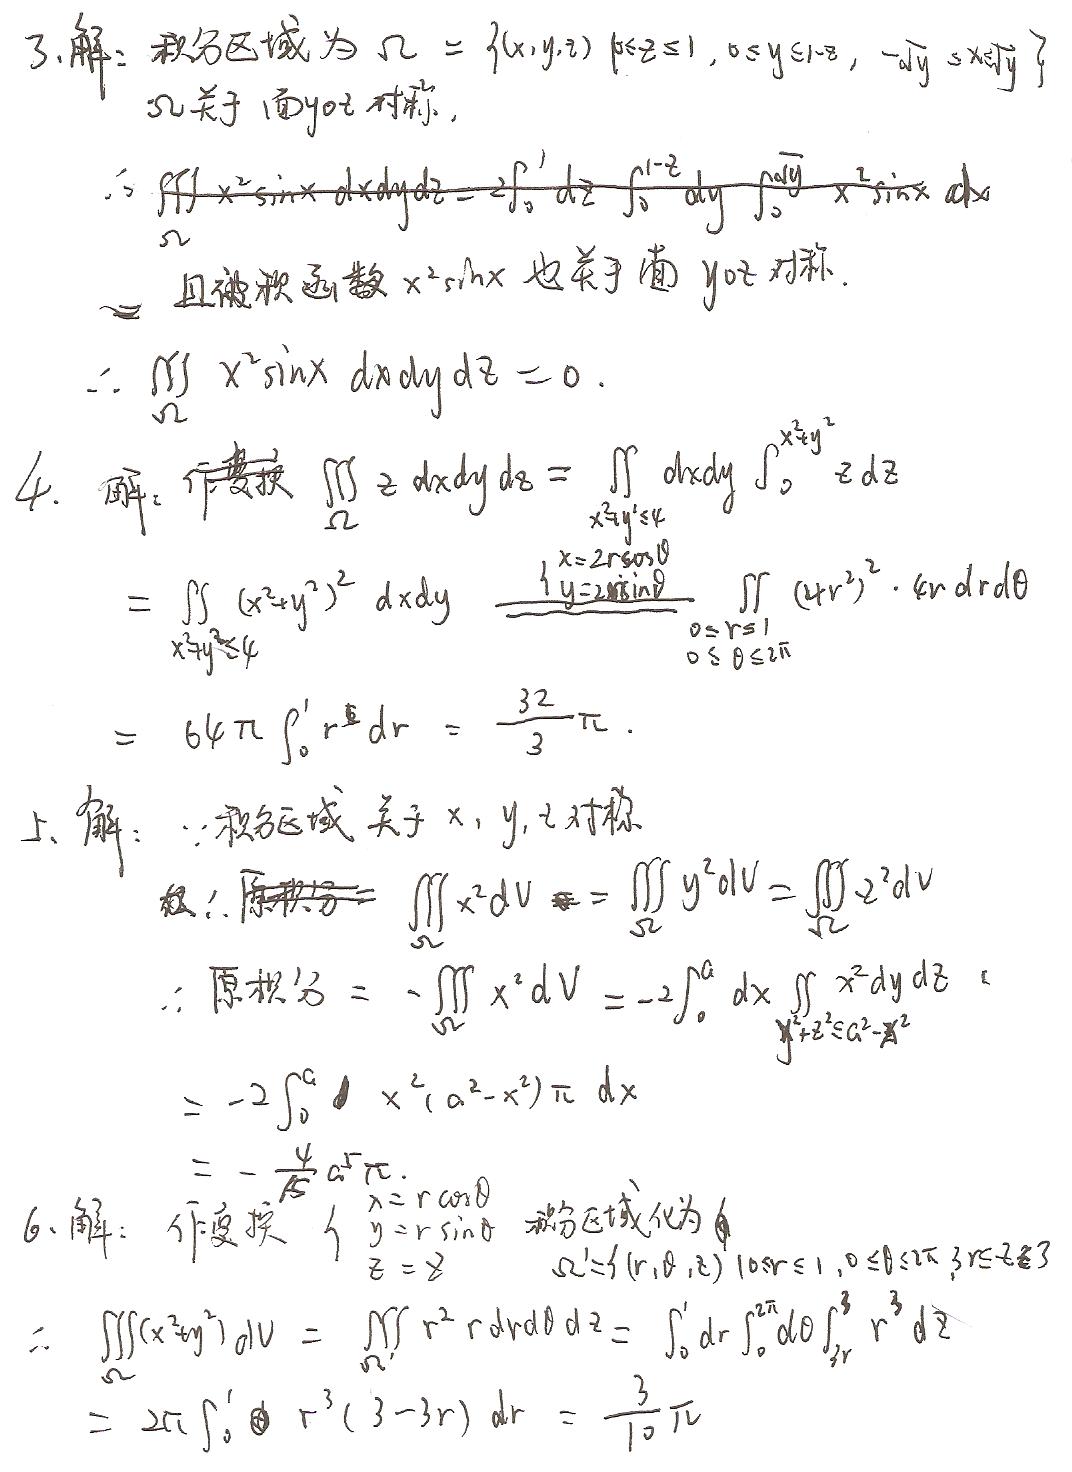 3. 解: 积分区域为 Ω = {(x,y,z) | 0≤z≤1, 0≤y≤1-z, -√y ≤x≤√y}
Ω关于面yoz对称,
∴ ∭_Ω x² sinx dxdydz = 2∫₀¹ dz ∫₀^{1-z} dy ∫₀^{√y} x² sinx dx
且被积函数 x² sinx 也关于面 yoz 对称.
∴ ∭_Ω x² sinx dxdydz = 0.
4. 解: 作变换 ∭_Ω z dxdydz = ∬_{x²+y²≤4} dxdy ∫₀^{x²+y²} z dz
= ∬_{x²+y²≤4} (x²+y²)² dxdy {x=2rcosθ y=2rsinθ = ∬_{0≤r≤1 0≤θ≤2π} (4r²)²·4r drdθ
= 64π ∫₀¹ r⁵ dr = 32/3 π.
5. 解: ∵积分区域关于 x, y, z 对称
∴ 原积分= ∭_Ω x²dV = ∭_Ω y²dV = ∭_Ω z²dV
∴ 原积分 = -∭_Ω x²dV = -2∫₀^a dx ∬_{y²+z²≤a²-x²} x²dydz
= -2∫₀^a x²(a²-x²)π dx
= - 4/15 a⁵π.
6. 解: 作变换 {x=rcosθ y=rsinθ z=z 积分区域化为
Ω'={(r,θ,z) | 0≤r≤1, 0≤θ≤2π, 3r≤z≤3
∴ ∭_Ω (x²+y²) dV = ∭_Ω' r² r drdθdz = ∫₀¹ dr ∫₀^{2π} dθ ∫_{3r}^3 r³ dz
= 2π ∫₀¹ r³ (3-3r) dr = 3/10 π